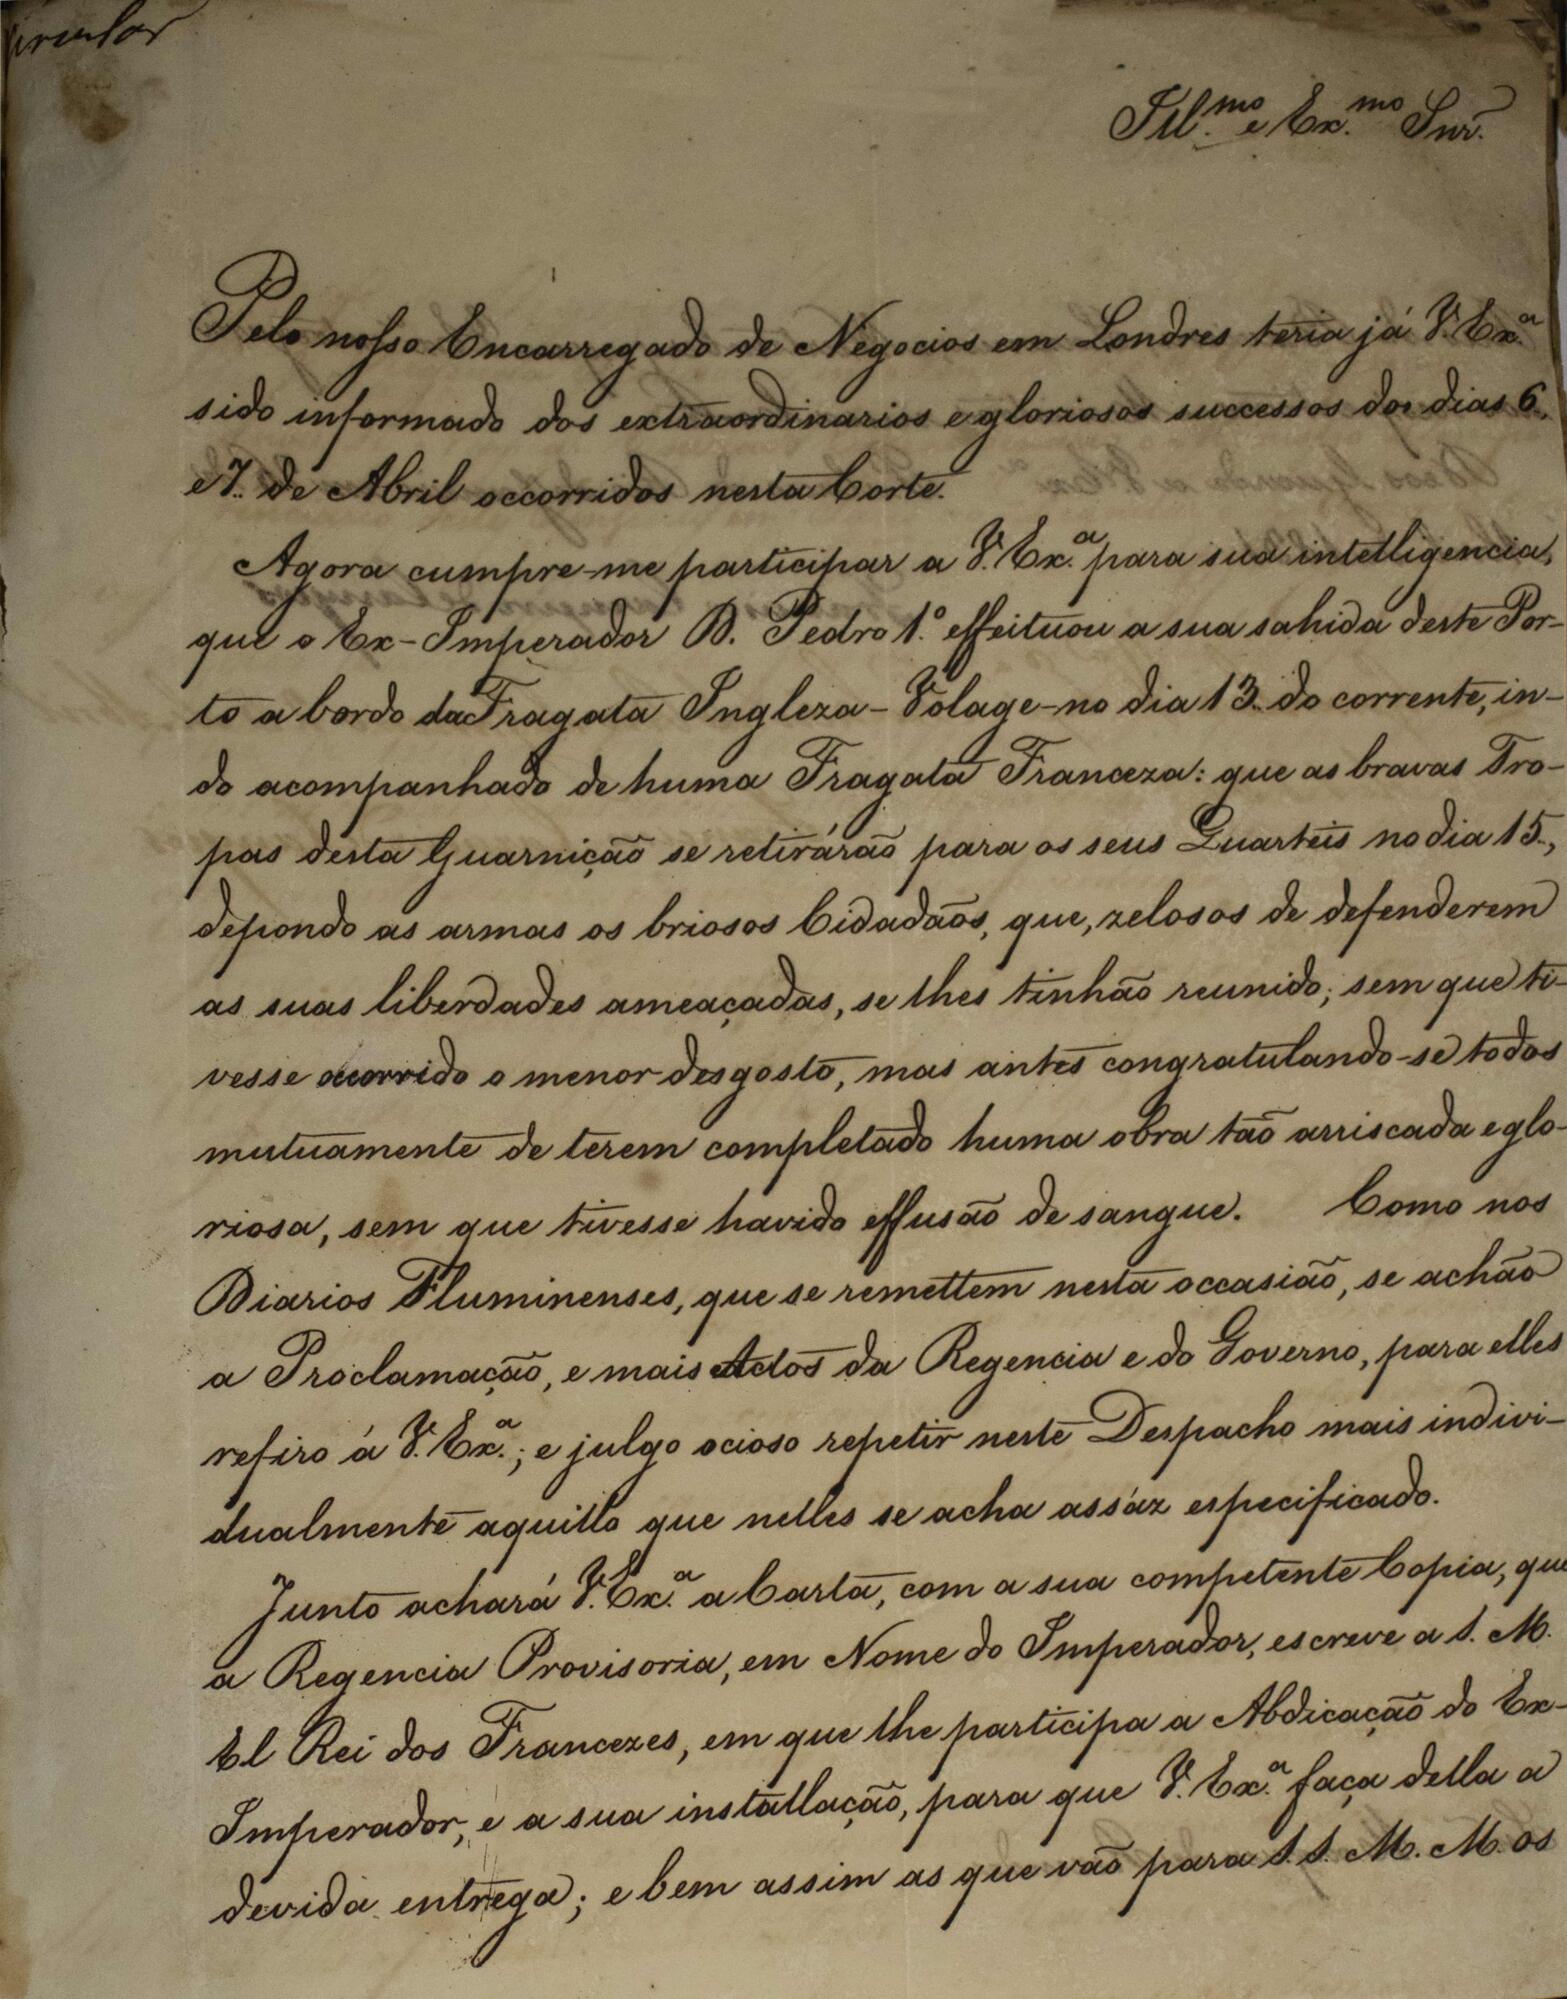 Circular
Ill.mo e Ex.mo Snr.
Pelo nosso Encarregado de Negocios em Londres teria já V. Ex.a
sido informado dos extraordinarios e gloriosos successos dos dias 6.
e 7. de Abril occorridos nesta Corte.
Agora cumpre-me participar a V. Ex.a para sua intelligencia,
que o Ex-Imperador D. Pedro 1.º effeituou a sua sahida deste Por-
to a bordo da Fragata Ingleza - Volage - no dia 13. do corrente, in-
do acompanhado de huma Fragata Franceza: que as bravas Tro-
pas desta Guarnição se retirárão para os seus Quarteis no dia 15.,
depondo as armas os briosos Cidadãos, que, zelosos de defenderem
as suas liberdades ameaçadas, se lhes tinhão reunido; sem que ti-
vesse ocorrido o menor desgosto, mas antes congratulando-se todos
mutuamente de terem completado huma obra tão arriscada e glo-
riosa, sem que tivesse havido effusão de sangue. Como nos
Diarios Fluminenses, que se remettem nesta occasião, se achão
a Proclamação, e mais Actos da Regencia e do Governo, para elles
refiro á V. Ex.a; e julgo ocioso repetir neste Despacho mais indivi-
dualmente aquillo que nelles se acha assáz especificado.
Junto achará V. Ex.a a Carta, com a sua competente Copia, que
a Regencia Provisoria, em Nome do Imperador, escreve a S. M.
El Rei dos Francezes, em que lhe participa a Abdicação do Ex-
Imperador, e a sua installação, para que V. Ex.a faça della a
devida entrega; e bem assim as que vão para S.S. M. M. os